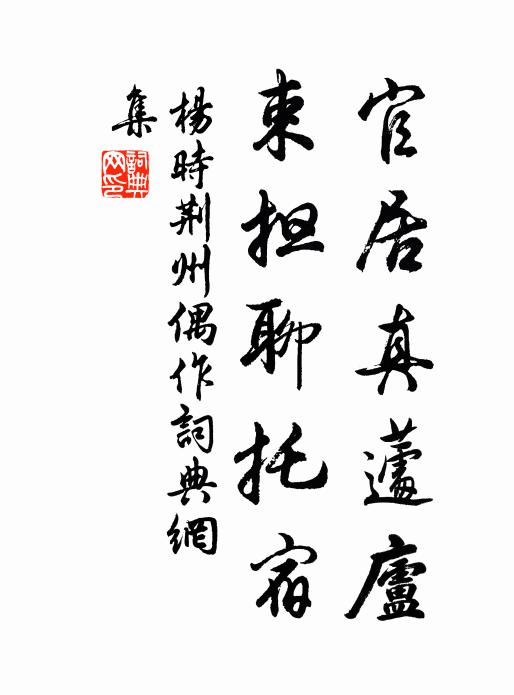 官居真蘧廬
束担聊托宿
楊時荆州偶作詞典網
集
詞典網印